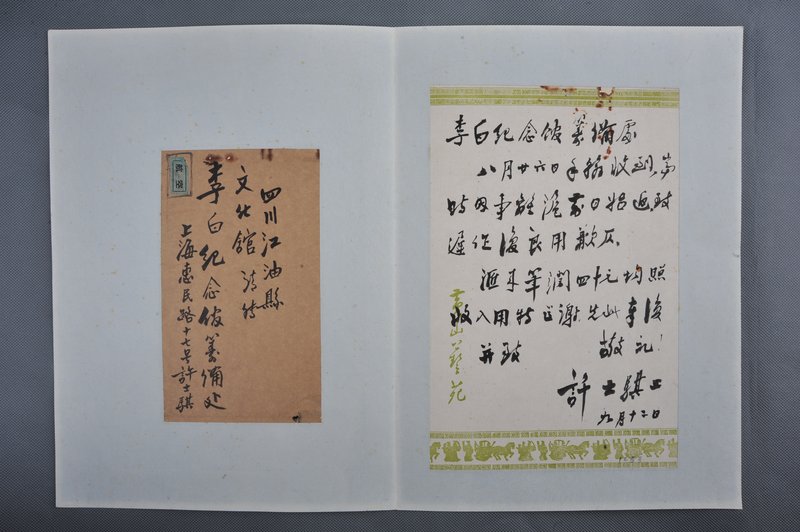 四川江油縣
文化館請转
李白紀念馆籌備处
上海惠民路十七号許士騏
李白纪念馆筹備處
八月廿六日手翰收到,当
時因事離滬,前日始返,致
遲作復,良用歉仄。
匯来筆潤四十元均照
收入用特 谢,先此奉復
并致 敬礼!
許士騏上
九月十二日
黄山藝苑